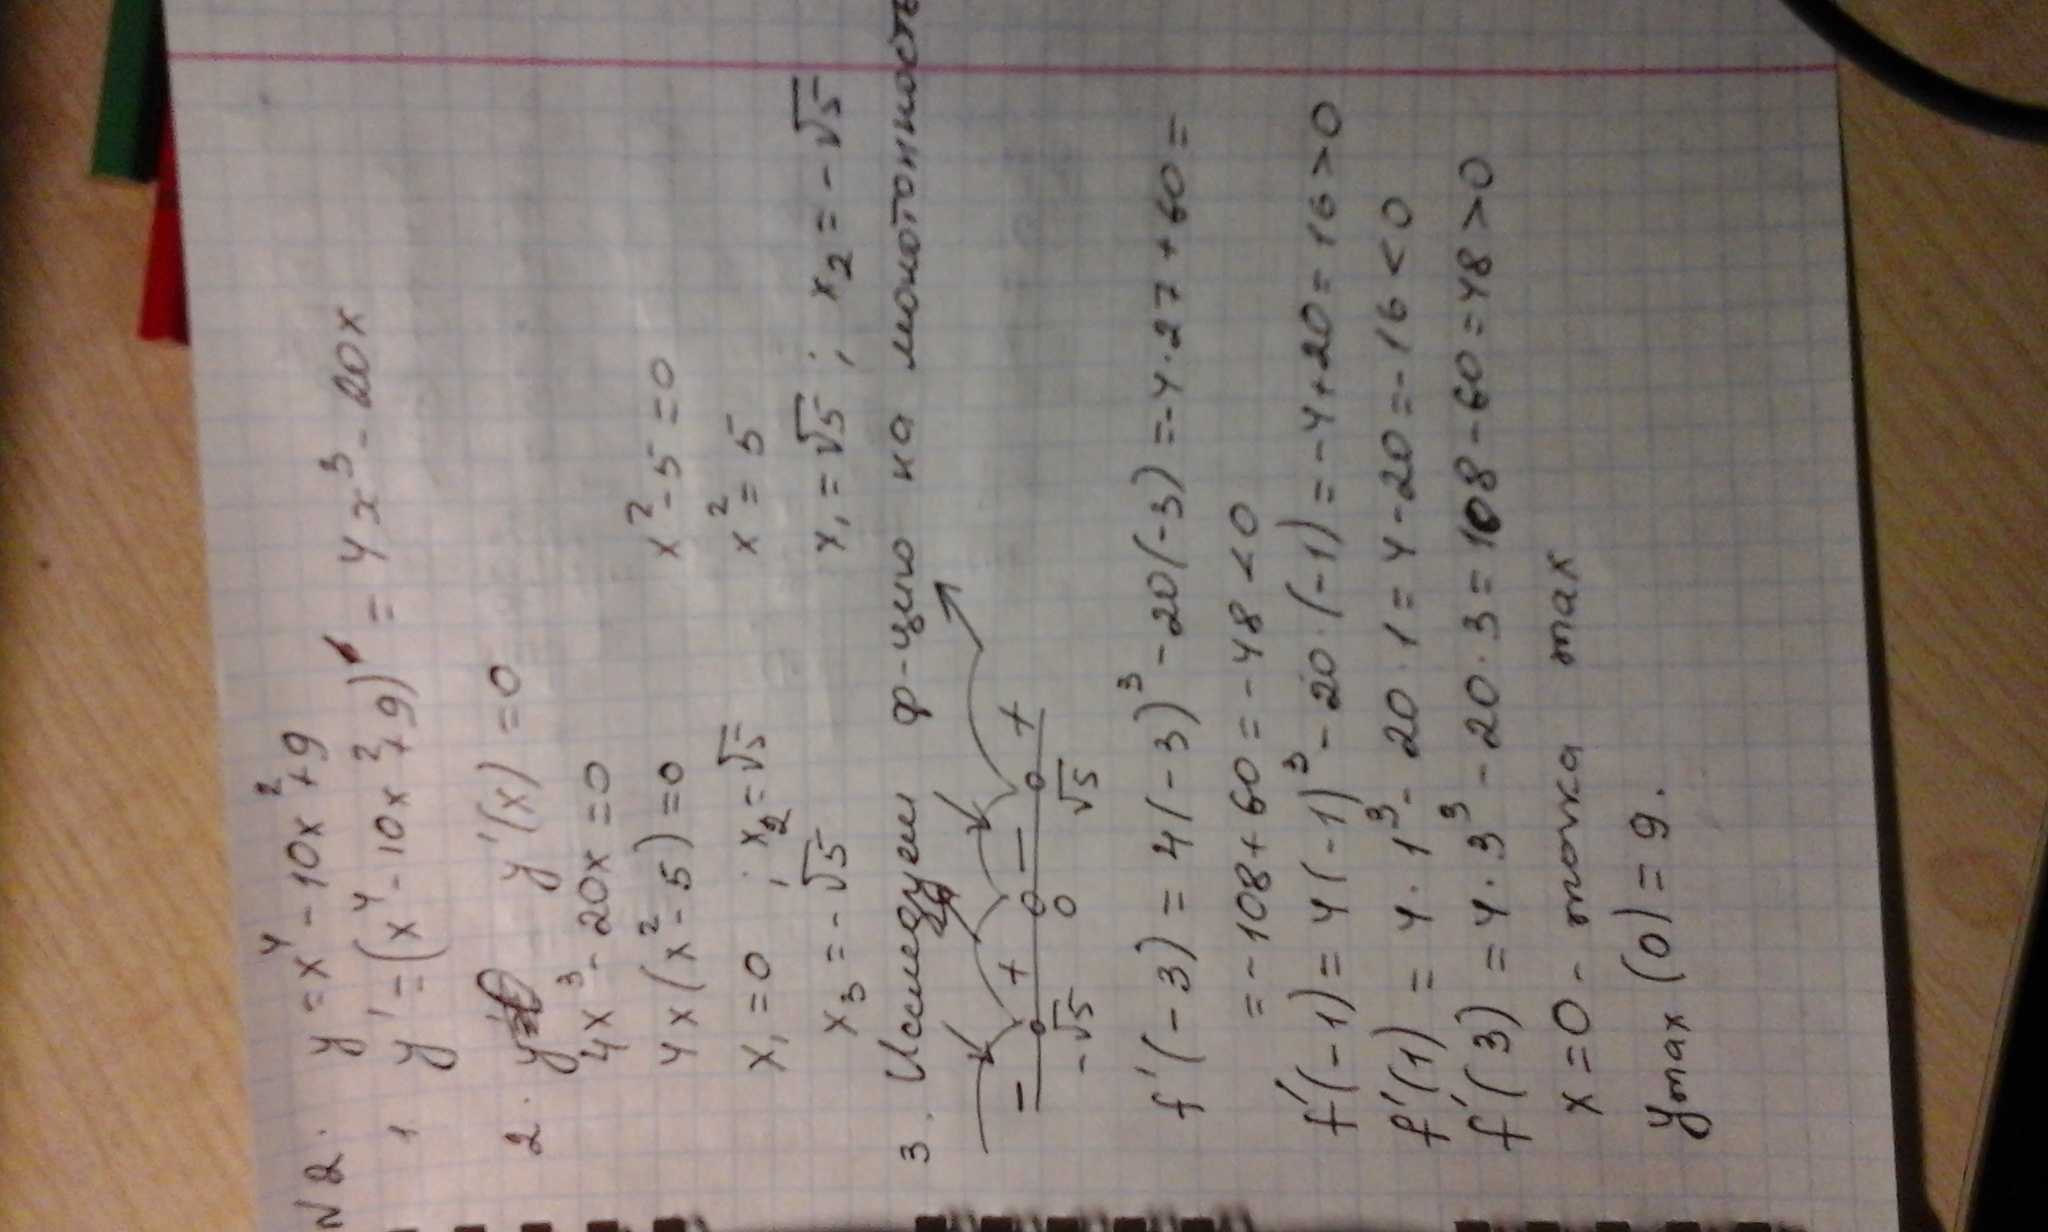 N 2. y = x⁴ - 10x² + 9
1. y' = (x⁴ - 10x² + 9)' = 4x³ - 20x
2. y'(x) = 0
4x³ - 20x = 0
4x(x² - 5) = 0
x² - 5 = 0
x² = 5
x₁ = 0 ; x₂ = √5
x₃ = -√5
x₁ = √5 ; x₂ = -√5
3. Исследуем ф-цию на монотонность
- + - +
-√5 0 √5
f'(-3) = 4(-3)³ - 20(-3) = -4·27 + 60 =
= -108 + 60 = -48 < 0
f'(-1) = 4(-1)³ - 20·(-1) = -4 + 20 = 16 > 0
f'(1) = 4·1³ - 20·1 = 4 - 20 = -16 < 0
f'(3) = 4·3³ - 20·3 = 108 - 60 = 48 > 0
x = 0 - точка max
ymax (0) = 9.